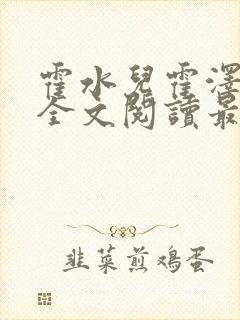 霍水兒霍澤
全文閱讀最
韭菜煎鸡蛋